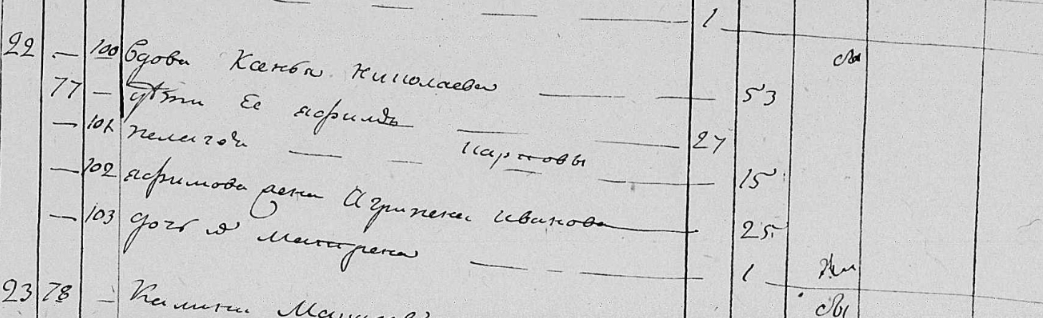 1
22 — 100 вдова Ксенья Николаева — — — 53 оы
77 — дѣти Ее Ефимъ — — 27
— 101 пелагея — — Карповы — — 15
— 102 Ефимова жена Агрипена Иванова 25
— 103 дочь я Матрена — — — 1
23 78 — Калина